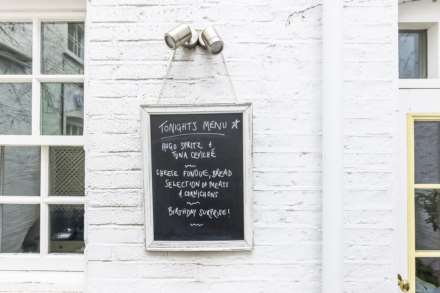 TONIGHTS MENU
HUGO SPRITZ &
TUNA CEVICHÉ
CHEESE FONDUE, BREAD
SELECTION OF MEATS
& CORNICHONS
BIRTHDAY SURPRISE!